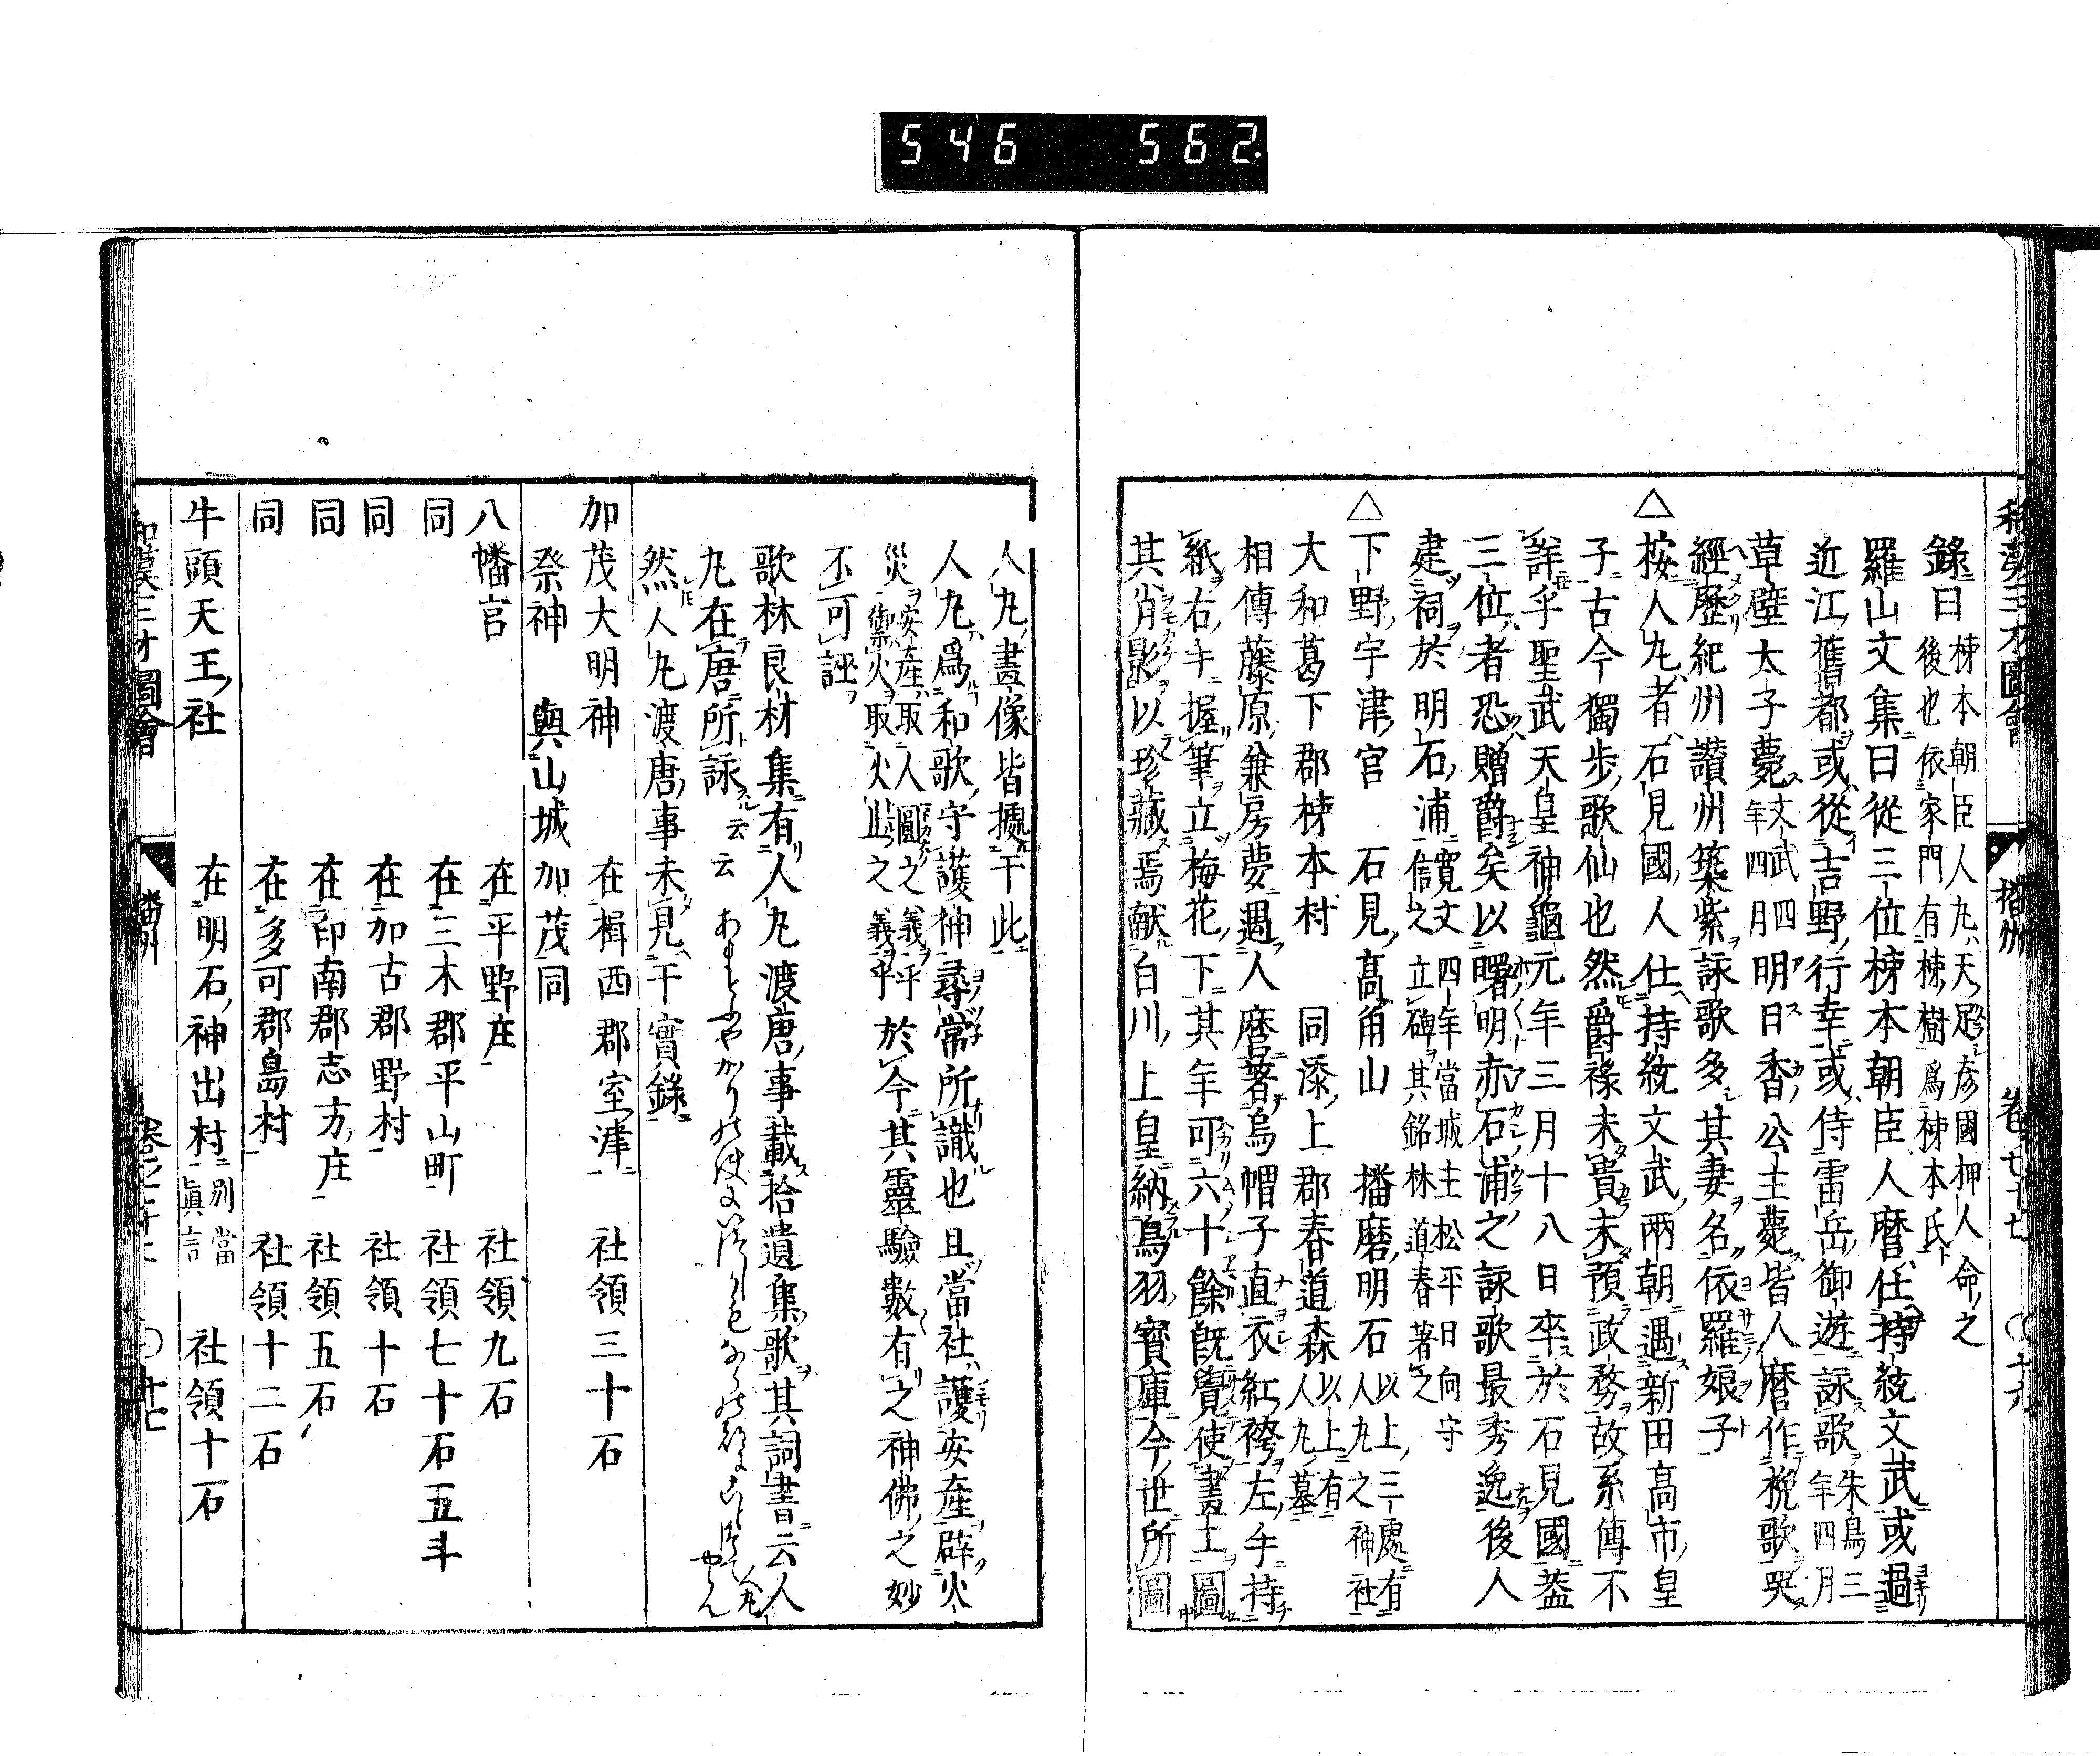 546 562
和漢三才圖會 播州 卷七十七 ○十六
錄曰柹本朝臣人丸ハ天足彦國押人命之
後也依家門有柹樹爲柹本氏
羅山文集曰從三位柹本朝臣人麿任持統文武或過
近江舊都或從吉野行幸或侍雷岳御遊詠歌朱鳥三年四月
草壁太子薨文武四年四月明日香公主薨皆人麿作挽歌哭
經歷紀州讚州築紫詠歌多其妻名依羅娘子
△按人丸者石見國人仕持統文武兩朝遇新田高市皇
子古今獨步歌仙也然爵祿未貴未預政務故系傳不
詳乎聖武天皇神龜元年三月十八日卒於石見國葢
三位者恐贈爵矣以曙明赤石浦之詠歌最秀逸後人
建祠於明石浦寛文四年當城主松平日向守
信之立碑其銘林道春著之
△下野宇津宮 石見高角山 播磨明石以上三處有人丸之神社
大和葛下郡柹本村 同添上郡春道森以上有人丸墓
相傳藤原兼房夢遇人麿著烏帽子直衣紅袴左手持
紙右手握筆立梅花下其年可六十餘既覺使畫工圖
其肖影以珍藏焉献白川上皇納鳥羽寶庫今世所圖
人丸畫像皆據于此
人丸爲和歌守護神尋常所識也且當社護安產辟火
災安產取人圓之義乎
御火取火止之義乎於今其靈驗數有之神佛之妙
不可誣
歌林良材集有人丸渡唐事載拾遺集歌其詞書云人
丸在唐所詠云云
然人丸渡唐事未見于實錄
加茂大明神 在楫西郡室津 社領三十石
祭神 與山城加茂同
八幡宮 在平野庄 社領九石
同 在三木郡平山町 社領七十石五斗
同 在加古郡野村 社領十石
同 在印南郡志方庄 社領五石
同 在多可郡島村 社領十二石
牛頭天王社 在明石神出村別當眞言 社領十石
和漢三才圖會 播州 卷七十七 ○十七